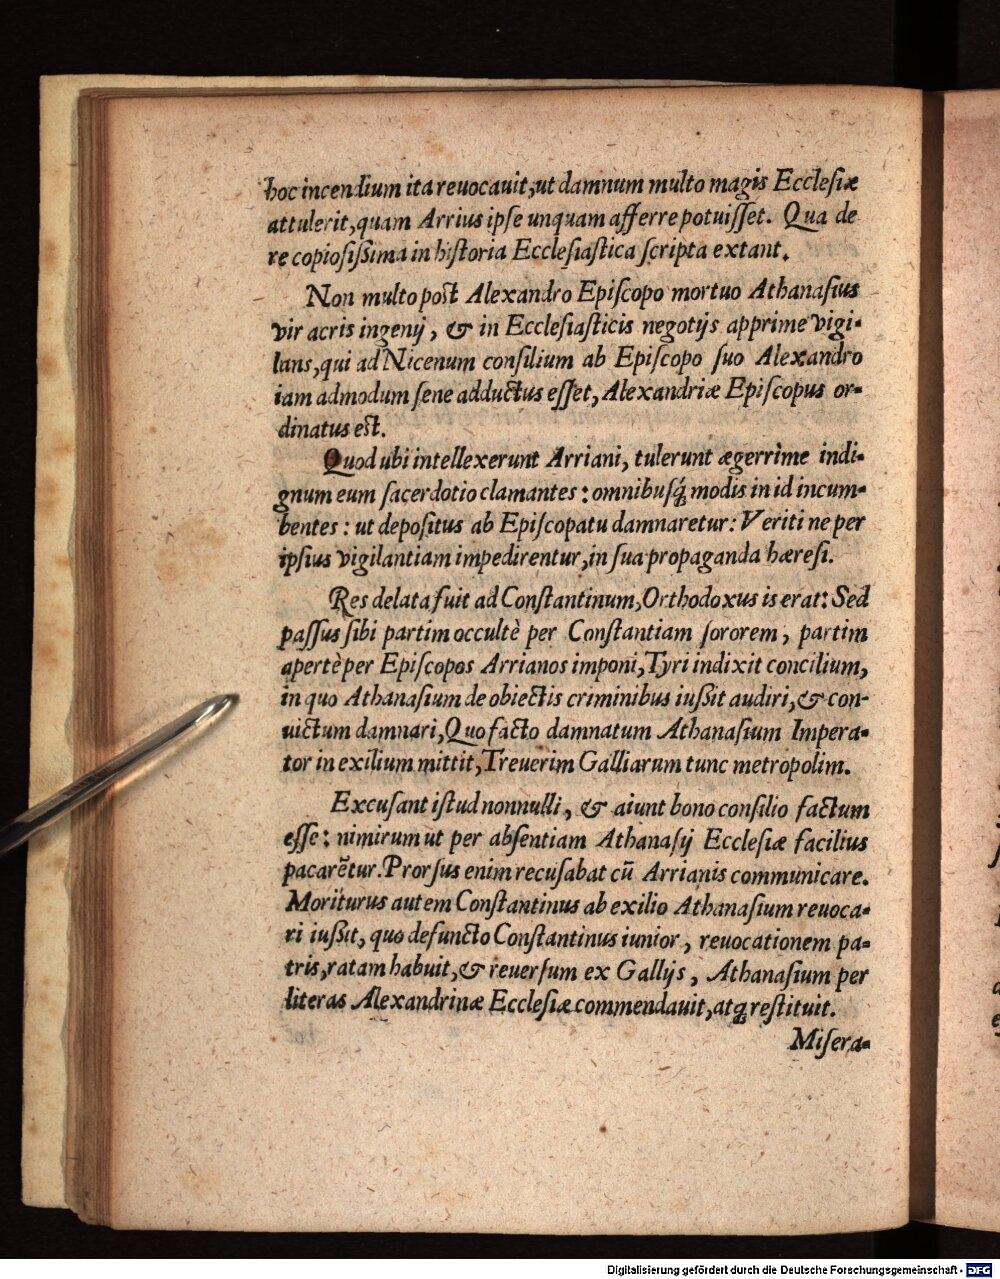 hoc incendium ita reuocauit, ut damnum multo magis Ecclesiæ
attulerit, quam Arrius ipse unquam afferre potuisset. Qua de
re copiosissima in historia Ecclesiastica scripta extant.
Non multo post Alexandro Episcopo mortuo Athanasius
vir acris ingenij, & in Ecclesiasticis negotijs apprime vigi-
lans, qui ad Nicenum consilium ab Episcopo suo Alexandro
iam admodum sene adductus esset, Alexandriæ Episcopus or-
dinatus est.
Quod ubi intellexerunt Arriani, tulerunt ægerrime indi-
gnum eum sacerdotio clamantes: omnibusq́; modis in id incum-
bentes: ut depositus ab Episcopatu damnaretur: Veriti ne per
ipsius vigilantiam impedirentur, in sua propaganda hæresi.
Res delata fuit ad Constantinum, Orthodoxus is erat: Sed
passus sibi partim occultè per Constantiam sororem, partim
apertè per Episcopos Arrianos imponi, Tyri indixit concilium,
in quo Athanasium de obiectis criminibus iussit audiri, & con-
uictum damnari, Quo facto damnatum Athanasium Impera-
tor in exilium mittit, Treuerim Galliarum tunc metropolim.
Excusant istud nonnulli, & aiunt bono consilio factum
esse: nimirum ut per absentiam Athanasij Ecclesiæ facilius
pacarẽtur. Prorsus enim recusabat cũ Arrianis communicare.
Moriturus autem Constantinus ab exilio Athanasium reuoca-
ri iussit, quo defuncto Constantinus iunior, reuocationem pa-
tris, ratam habuit, & reuersum ex Gallijs, Athanasium per
literas Alexandrinæ Ecclesiæ commendauit, atq; restituit.
Misera-
Digitalisierung gefördert durch die Deutsche Forschungsgemeinschaft - DFG